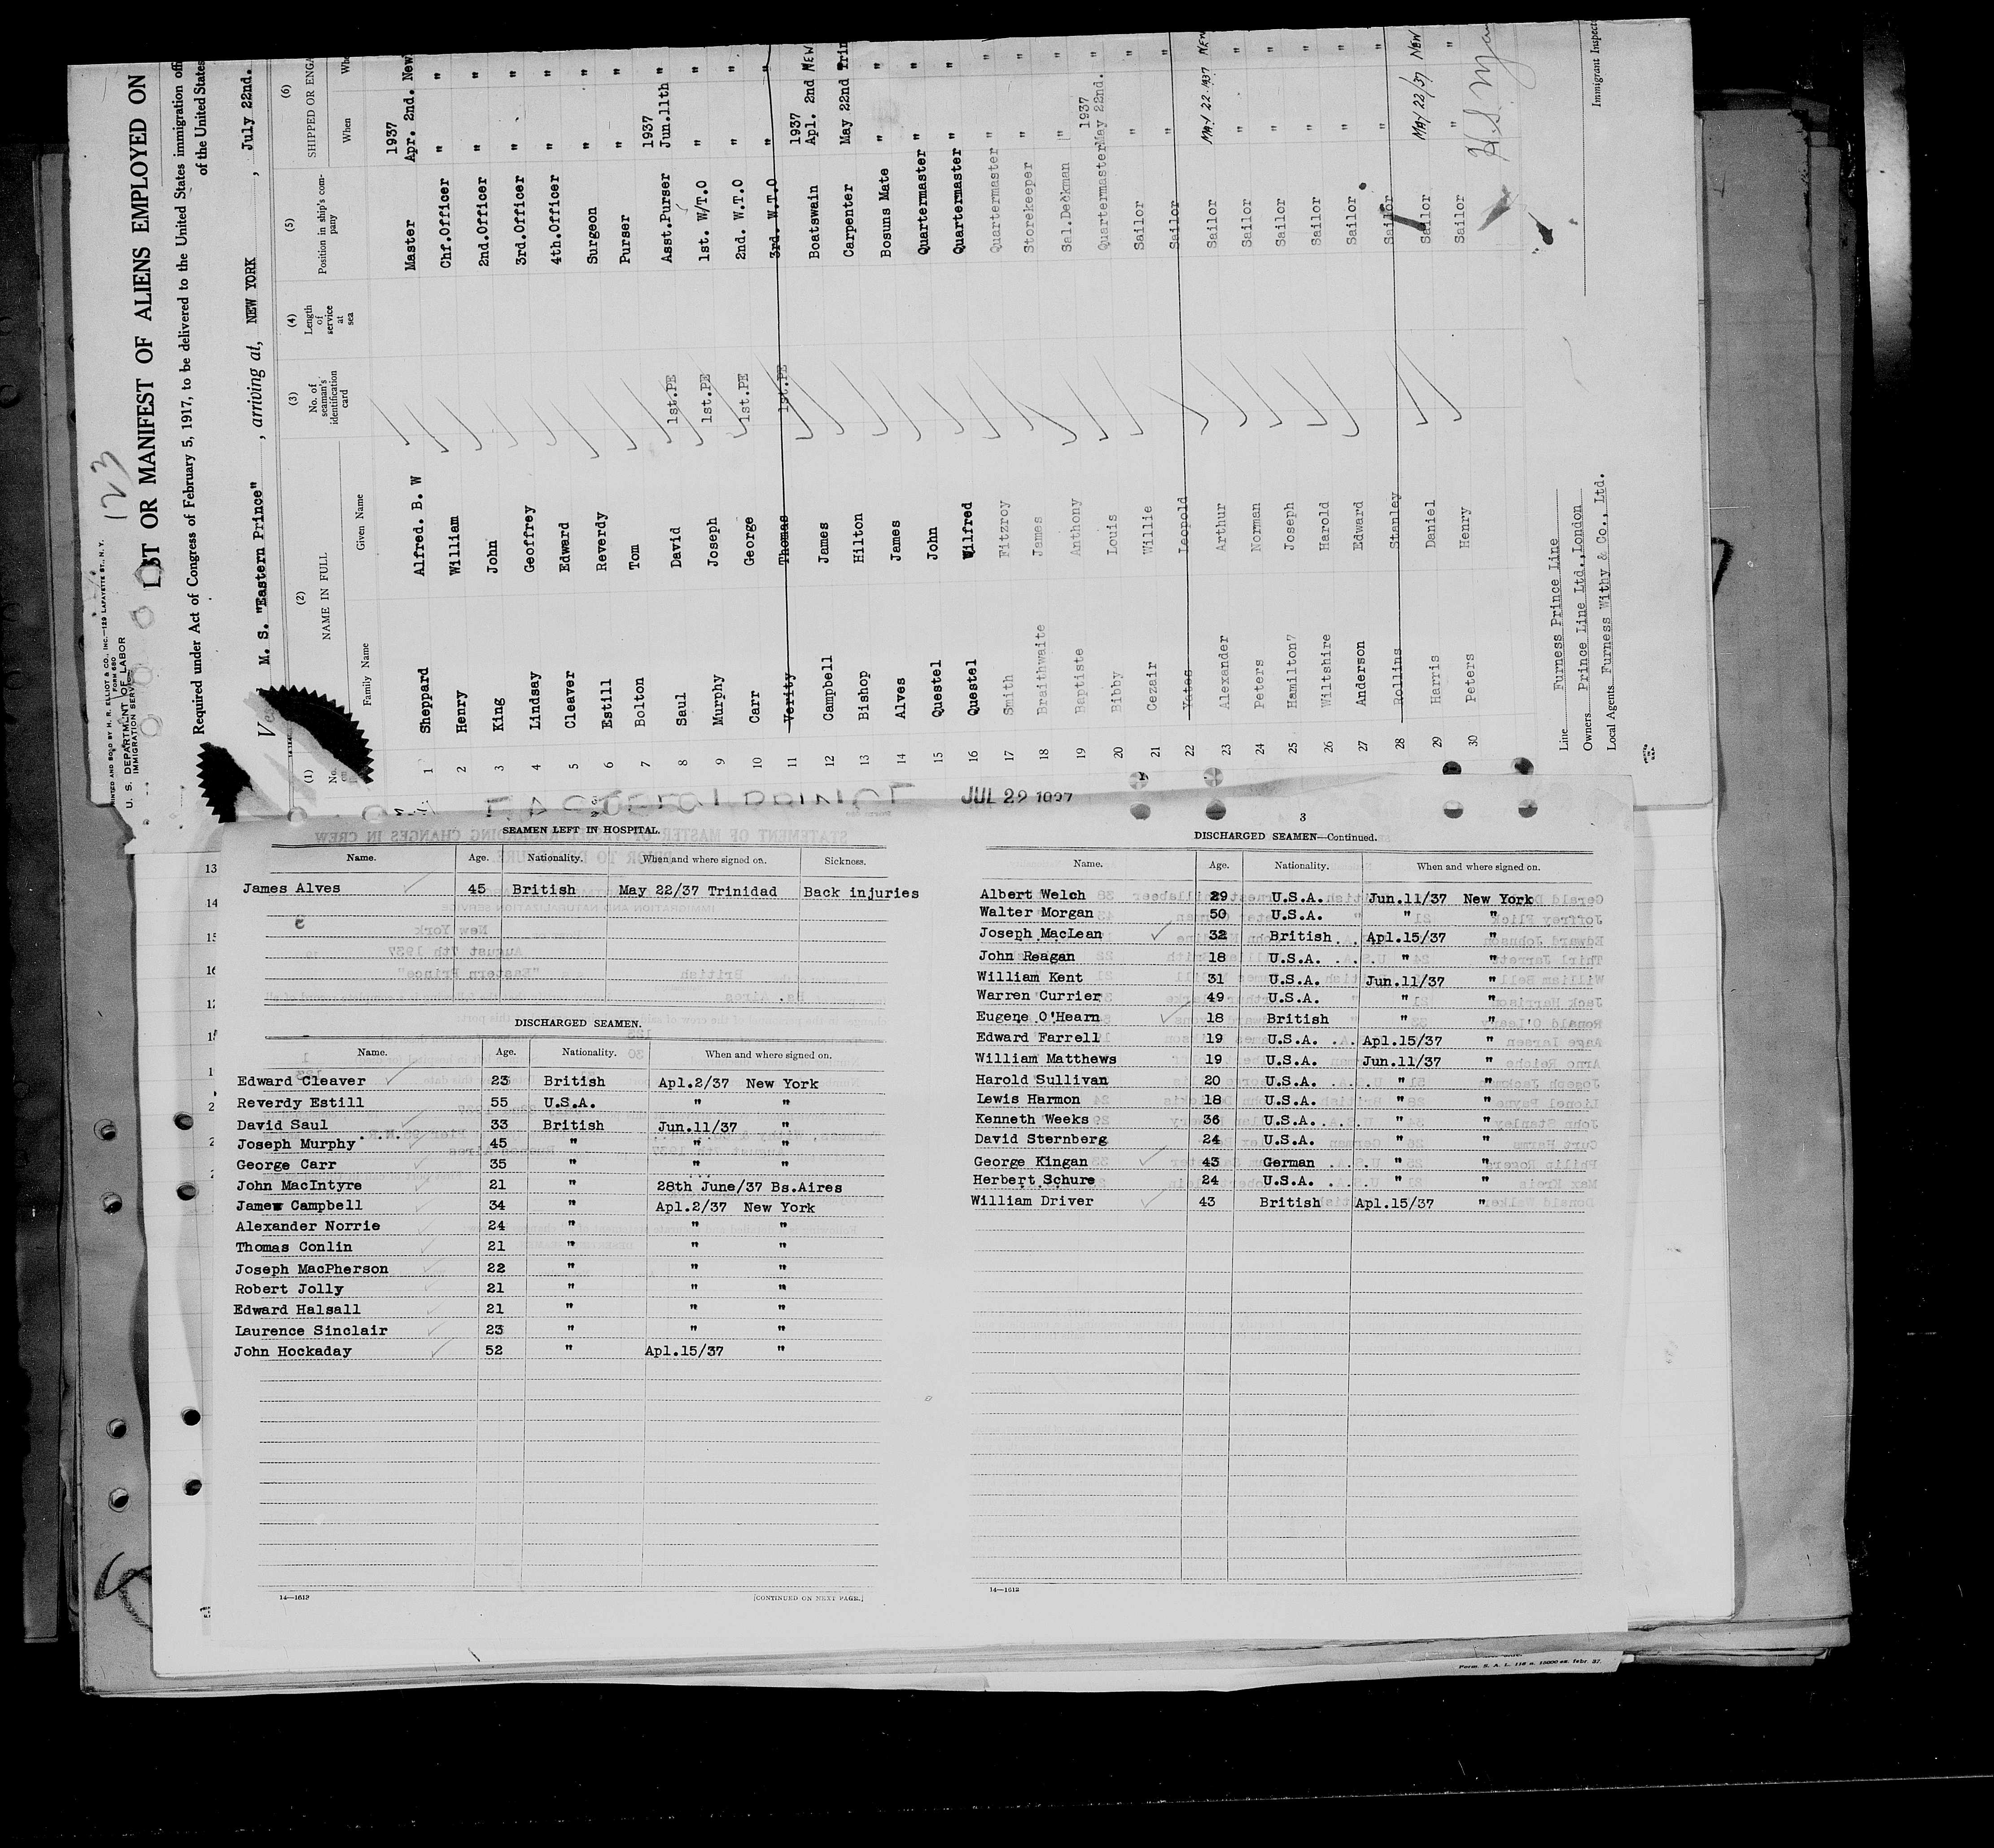 PRINTED AND SOLD BY H. R. ELLIOT & CO., INC.—129 LAFAYETTE ST., N. Y.
FORM 680
U. S. DEPARTMENT OF LABOR
IMMIGRATION SERVICE
123
LIST OR MANIFEST OF ALIENS EMPLOYED ON
Required under Act of Congress of February 5, 1917, to be delivered to the United States immigration
of the United States
M. S. "Eastern Prince" , arriving at, NEW YORK , July 22nd.
(1) (2) (3) (4) (5) (6)
No. NAME IN FULL No. of seaman's identification card Length of service at sea Position in ship's company SHIPPED OR
Family Name Given Name When
1 Sheppard Alfred. B. W Master 1937 Apr. 2nd. New
2 Henry William Chf.Officer " "
3 King John 2nd.Officer " "
4 Lindsay Geoffrey 3rd.Officer " "
5 Cleaver Edward 4th.Officer " "
6 Estill Reverdy Surgeon " "
7 Bolton Tom Purser " "
8 Saul David 1st.PE Asst.Purser 1937 Jun.11th "
9 Murphy Joseph 1st.PE 1st. W/T.O " "
10 Carr George 1st.PE 2nd. W.T.O " "
11 Verity Thomas 1st.PE 3rd. W.T.O " "
12 Campbell James Boatswain 1937 Apl. 2nd NEW
13 Bishop Hilton Carpenter May 22nd Trin
14 Alves James Bosuns Mate " "
15 Questel John Quartermaster " "
16 Questel Wilfred Quartermaster " "
17 Smith Fitzroy Quartermaster " "
18 Braithwaite James Storekeeper " "
19 Baptiste Anthony Sal.Deckman " "
20 Bibby Louis Quartermaster 1937 May 22nd. "
21 Cezair Willie Sailor " "
22 Yates Leopold Sailor " "
23 Alexander Arthur Sailor MAY 22 1937 NEW
24 Peters Norman Sailor " "
25 Hamilton7 Joseph Sailor " "
26 Wiltshire Harold Sailor " "
27 Anderson Edward Sailor " "
28 Rollins Stanley Sailor " "
29 Harris Daniel Sailor MAY 22/37 NEW
30 Peters Henry Sailor " "
Line Furness Prince Line
Owners Prince Line Ltd.,London
Local Agents Furness Withy & Co., Ltd.
Immigrant
JUL 29 1937
SEAMEN LEFT IN HOSPITAL.
Name. Age. Nationality. When and where signed on. Sickness.
James Alves 45 British May 22/37 Trinidad Back injuries
DISCHARGED SEAMEN.
Name. Age. Nationality. When and where signed on.
Edward Cleaver 23 British Apl.2/37 New York
Reverdy Estill 55 U.S.A. " "
David Saul 33 British Jun.11/37 "
Joseph Murphy 45 " " "
George Carr 35 " " "
John MacIntyre 21 " 28th June/37 Bs.Aires
James Campbell 34 " Apl.2/37 New York
Alexander Norrie 24 " " "
Thomas Conlin 21 " " "
Joseph MacPherson 22 " " "
Robert Jolly 21 " " "
Edward Halsall 21 " " "
Laurence Sinclair 23 " " "
John Hockaday 52 " Apl.15/37 "
14—1612 [CONTINUED ON NEXT PAGE.]
3
DISCHARGED SEAMEN—Continued.
Name. Age. Nationality. When and where signed on.
Albert Welch 29 U.S.A. Jun.11/37 New York
Walter Morgan 50 U.S.A. " "
Joseph MacLean 32 British Apl.15/37 "
John Reagan 18 U.S.A. " "
William Kent 31 U.S.A. Jun.11/37 "
Warren Currier 49 U.S.A. " "
Eugene O'Hearn 18 British " "
Edward Farrell 19 U.S.A. Apl.15/37 "
William Matthews 19 U.S.A. Jun.11/37 "
Harold Sullivan 20 U.S.A. " "
Lewis Harmon 18 U.S.A. " "
Kenneth Weeks 36 U.S.A. " "
David Sternberg 24 U.S.A. " "
George Kingan 43 German " "
Herbert Schure 24 U.S.A. " "
William Driver 43 British Apl.15/37 "
14—1612